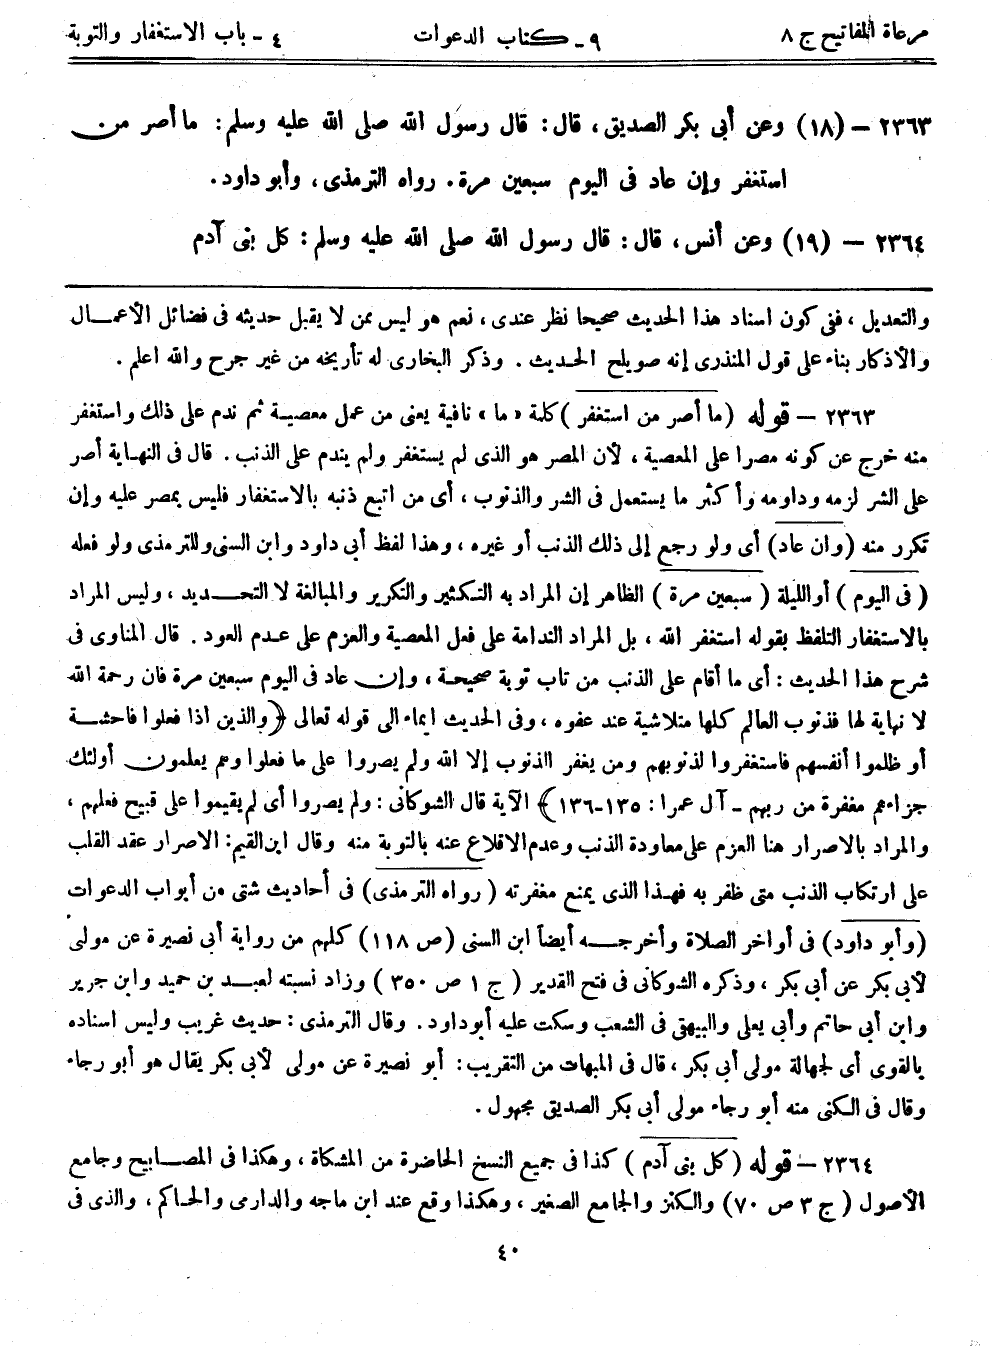 مرعاة المفاتيح ج ٨ ٩ ـ كتاب الدعوات ٤ ـ باب الاستغفار والتوبة
٢٣٦٣ – (١٨) وعن أبى بكر الصديق، قال: قال رسول الله صلى الله عليه وسلم: ما أصر من
استغفر وإن عاد فى اليوم سبعين مرة. رواه الترمذى، وأبو داود.
٢٣٦٤ – (١٩) وعن أنس، قال: قال رسول الله صلى الله عليه وسلم: كل بنى آدم
والتعديل، ففى كون اسناد هذا الحديث صحيحا نظر عندى، نعم هو ليس بمن لا يقبل حديثه فى فضائل الأعمال
والأذكار بناء على قول المنذرى إنه صويلح الحديث. وذكر البخارى له تأريخه من غير جرح والله اعلم.
٢٣٦٣ – قوله (ما أصر من استغفر) كلمة «ما» نافية يعنى من عمل معصية ثم ندم على ذلك واستغفر
منه خرج عن كونه مصرا على المعصية، لأن المصر هو الذى لم يستغفر ولم يندم على الذنب. قال فى النهاية أصر
على الشر لزمه وداومه وأكثر ما يستعمل فى الشر والذنوب، أى من اتبع ذنبه بالاستغفار فليس بمصر عليه وإن
تكرر منه (وان عاد) أى ولو رجع إلى ذلك الذنب أو غيره، وهذا لفظ أبى داود وابن السنى وللترمذى ولو فعله
(فى اليوم) أوالليلة (سبعين مرة) الظاهر إن المراد به التكثير والتكرير والمبالغة لا التحديد، وليس المراد
بالاستغفار التلفظ بقوله استغفر الله، بل المراد الندامة على فعل المعصية والعزم على عدم العود. قال المناوى فى
شرح هذا الحديث: أى ما أقام على الذنب من تاب توبة صحيحة، وإن عاد فى اليوم سبعين مرة فان رحمة الله
لا نهاية لها فذنوب العالم كلها متلاشية عند عفوه، وفى الحديث ايماء الى قوله تعالى ﴿والذين اذا فعلوا فاحشة
أو ظلموا أنفسهم فاستغفروا لذنوبهم ومن يغفر الذنوب إلا الله ولم يصروا على ما فعلوا وهم يعلمون أولئك
جزاءهم مغفرة من ربهم ـ آل عمرا: ١٣٥-١٣٦﴾ الآية قال الشوكانى: ولم يصروا أى لم يقيموا على قبيح فعلهم،
والمراد بالاصرار هنا العزم على معاودة الذنب وعدم الاقلاع عنه بالتوبة منه وقال ابن القيم: الاصرار عقد القلب
على ارتكاب الذنب متى ظفر به فهذا الذى يمنع مغفرته (رواه الترمذى) فى أحاديث شتى من أبواب الدعوات
(وأبو داود) فى أواخر الصلاة وأخرجه أيضاً ابن السنى (ص ١١٨) كلهم من رواية أبى نصيرة عن مولى
لأبى بكر عن أبى بكر، وذكره الشوكانى فى فتح القدير (ج ١ ص ٣٥٠) وزاد نسبته لعبد بن حميد وابن جرير
وابن أبى حاتم وأبى يعلى والبيهقى فى الشعب وسكت عليه أبوداود. وقال الترمذى: حديث غريب وليس اسناده
بالقوى أى لجهالة مولى أبى بكر، قال فى المبهات من التقريب: أبو نصيرة عن مولى لأبى بكر يقال هو أبو رجاء
وقال فى الكنى منه أبو رجاء مولى أبى بكر الصديق مجهول.
٢٣٦٤ – قوله (كل بنى آدم) كذا فى جميع النسخ الحاضرة من المشكاة، وهكذا فى المصابيح وجامع
الأصول (ج ٣ ص ٧٠) والكنز والجامع الصغير، وهكذا وقع عند ابن ماجه والدارى والحاكم، والذى فى
٤٠